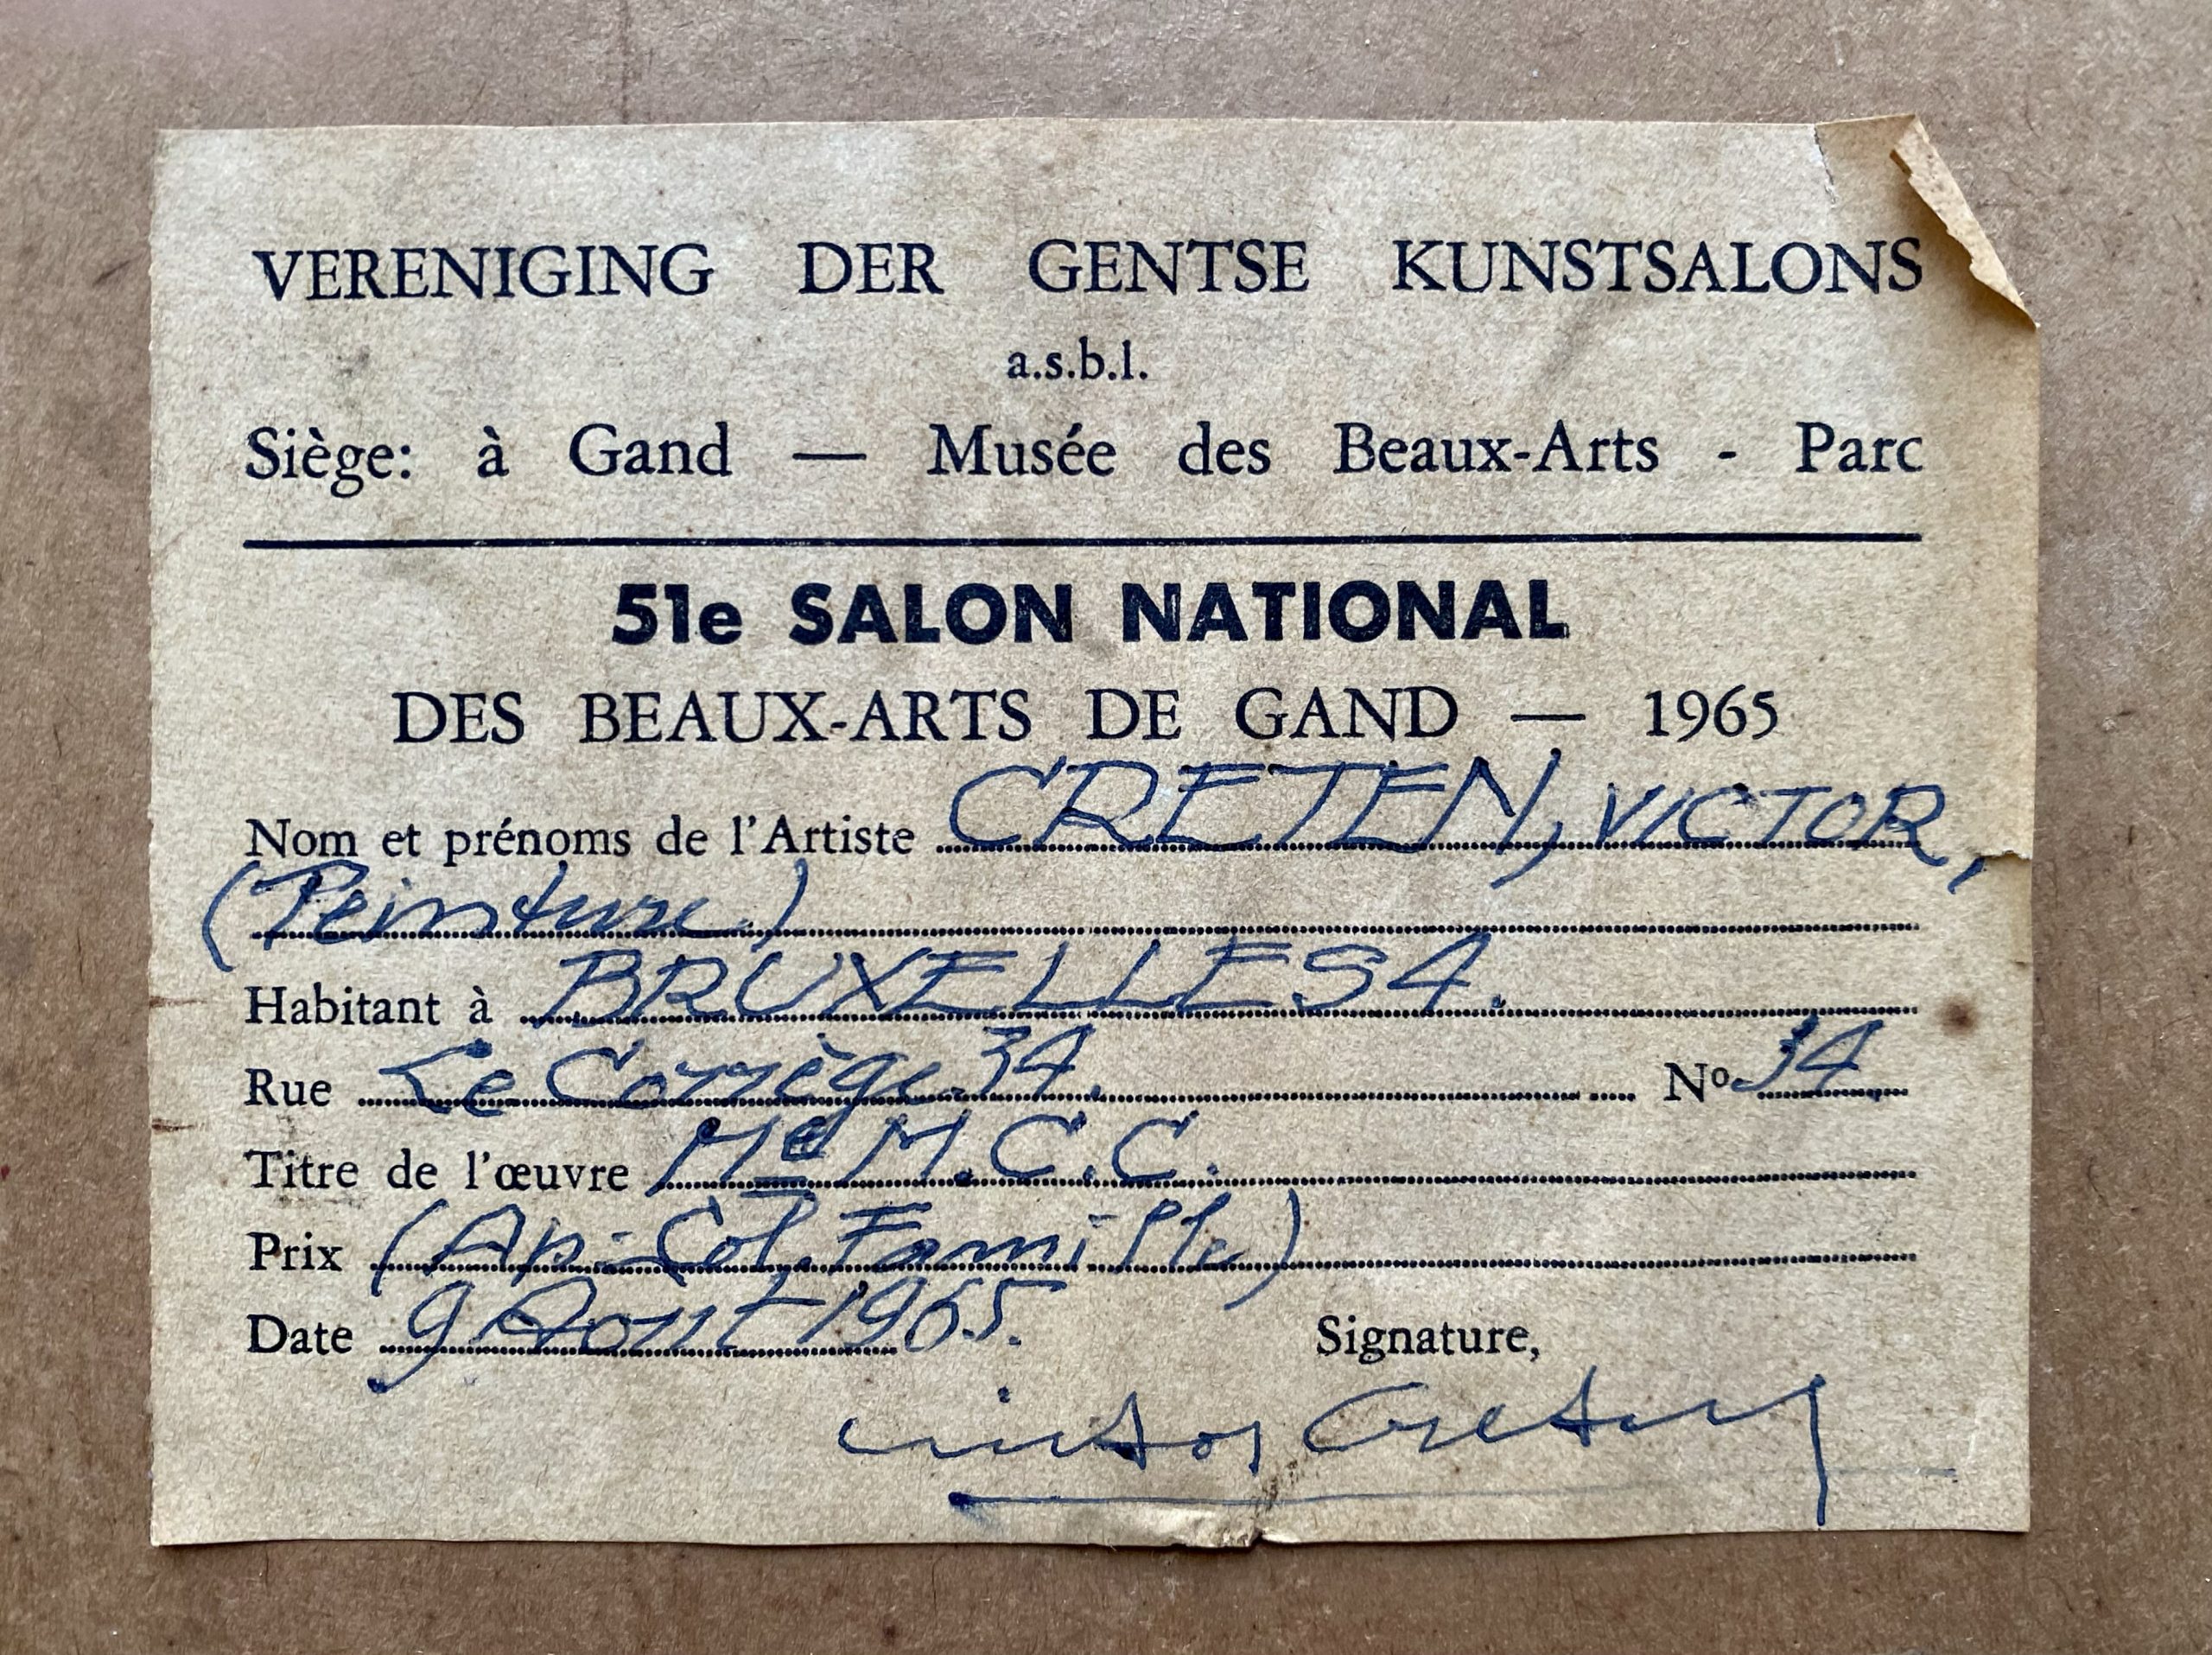 VERENIGING DER GENTSE KUNSTSALONS
a.s.b.l.
Siège: à Gand — Musée des Beaux-Arts - Parc
51e SALON NATIONAL
DES BEAUX-ARTS DE GAND — 1965
Nom et prénoms de l'Artiste CRETEN, VICTOR,
(Peinture)
Habitant à BRUXELLES 4.
Rue Le Corrège 34. Nº 34
Titre de l'œuvre Me M.C.C.
Prix (Ap. Col. Famille)
Date 9 Août 1965. Signature,
Victor Creten